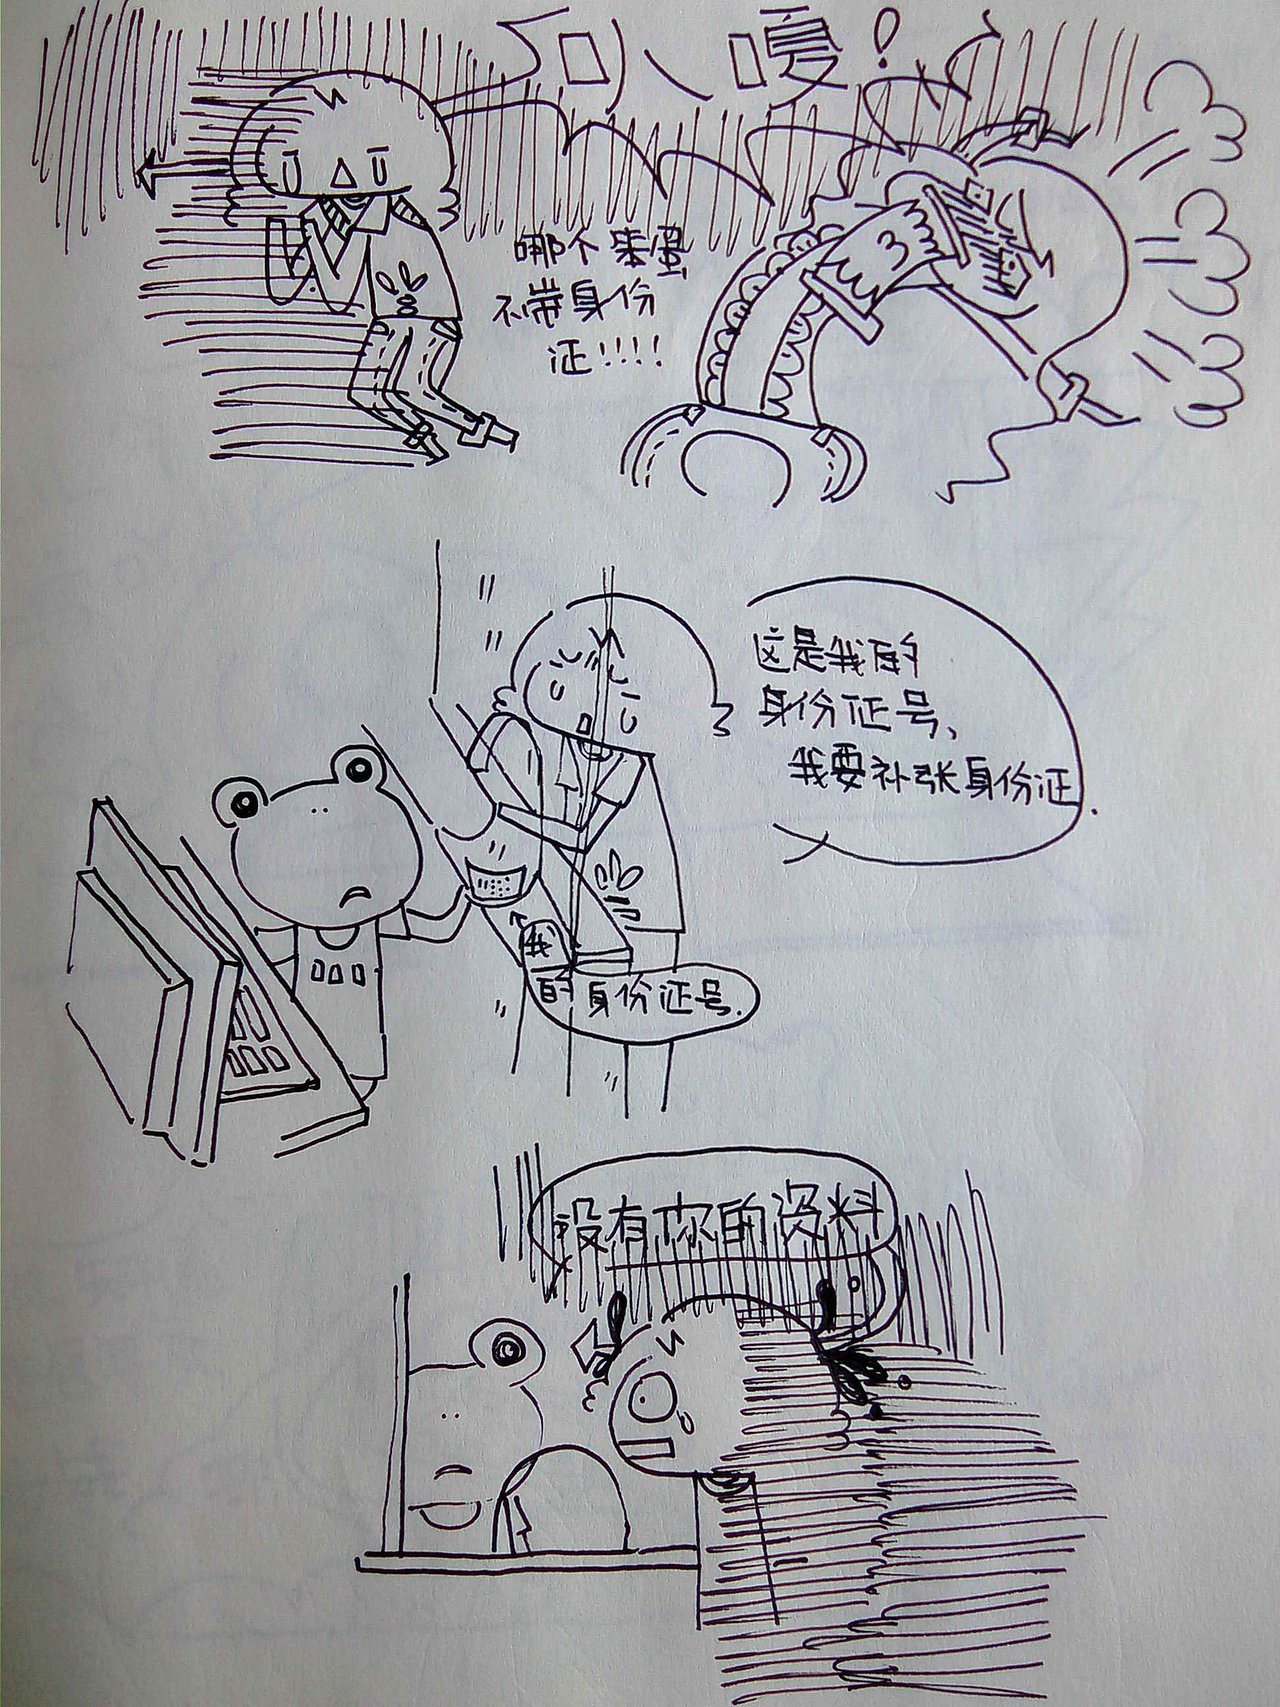 八嘎!
哪个笨蛋
不带身份
证!!!!
这是我的
身份证号、
我要补张身份证.
我
的身份证号.
没有你的资料